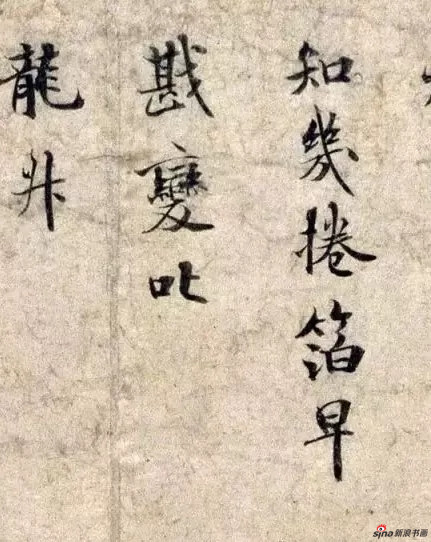 知幾捲箔早
戡變叱
龍舛
sina新浪书画